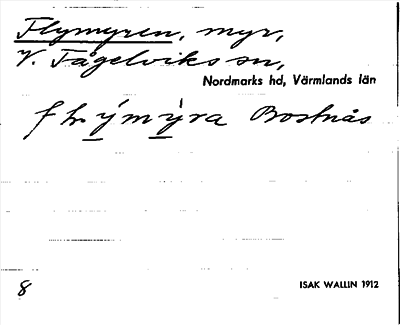 Flymyren, myr,
V. Fågelviks sn,
Nordmarks hd, Värmlands län
Bostnås
8
ISAK WALLIN 1912